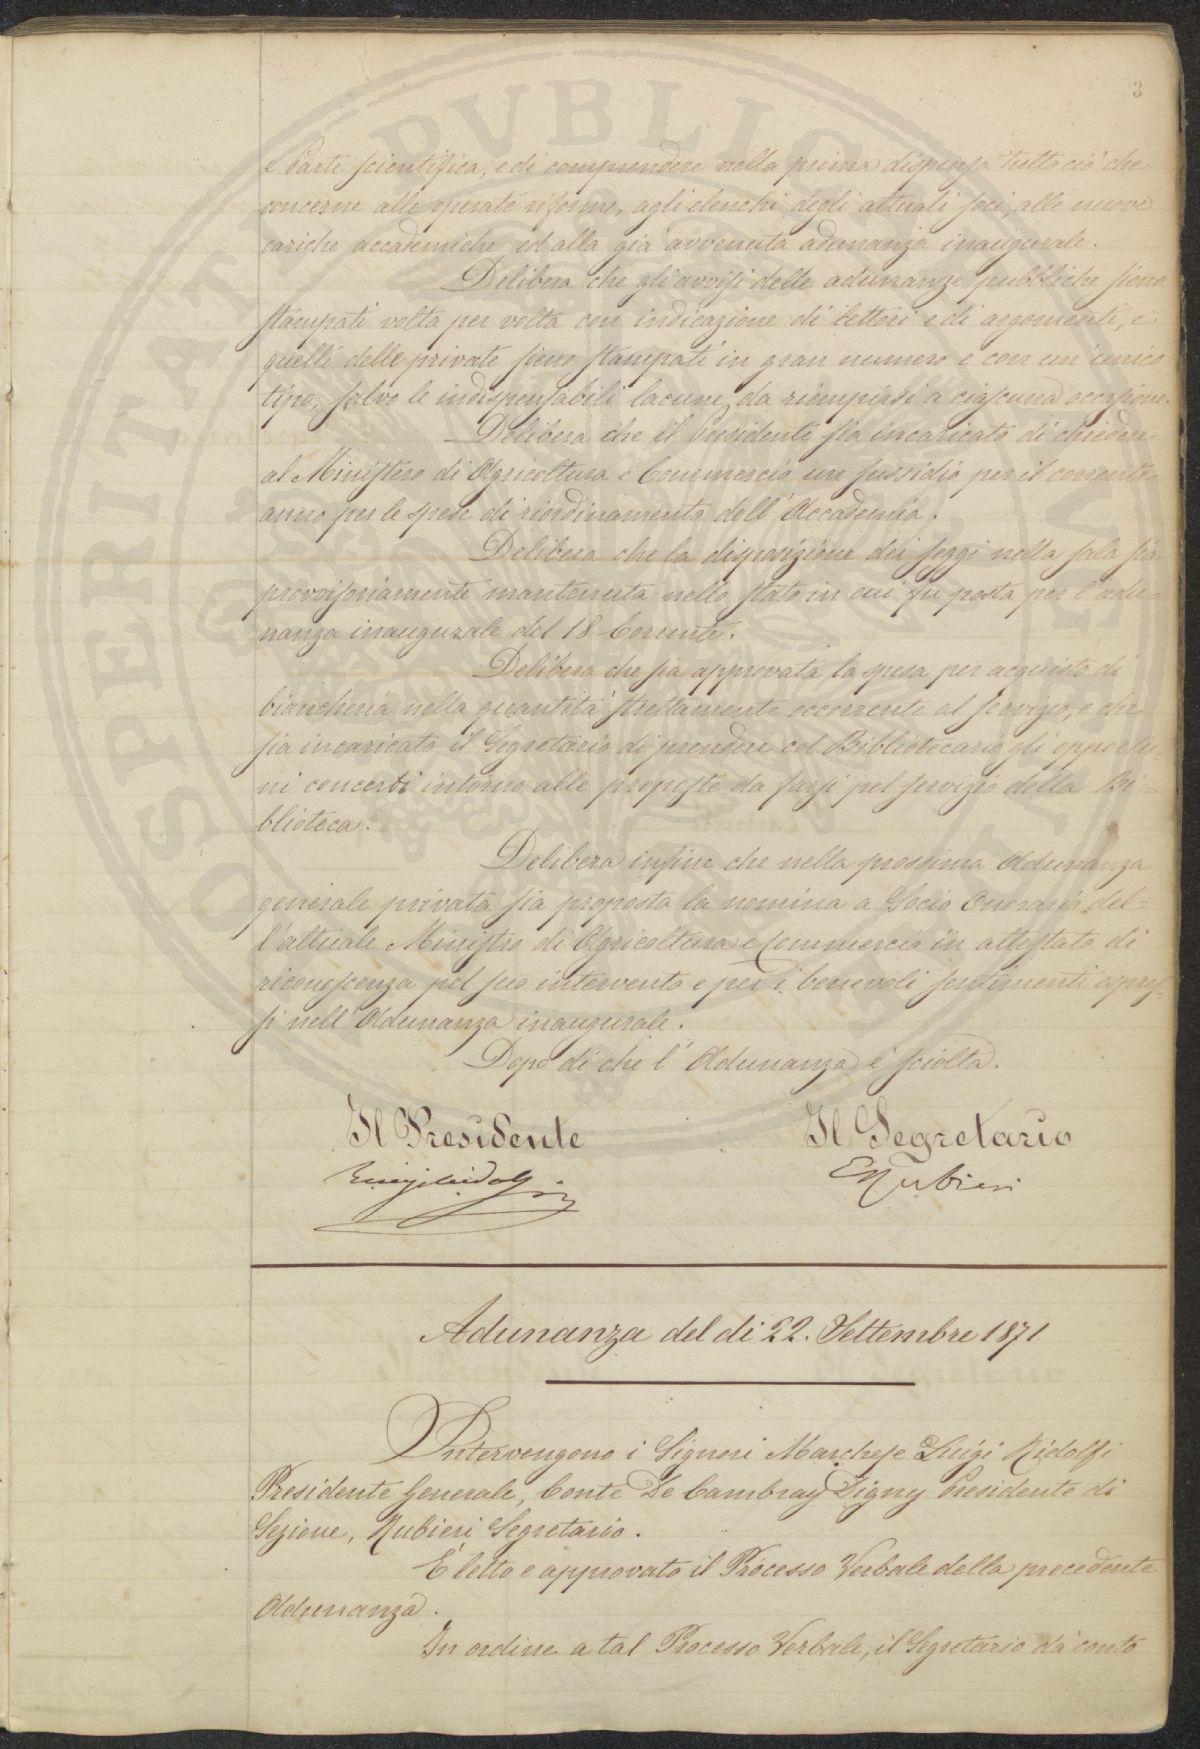 3
e Parte scientifica, e di comprendere nella prima dispensa tutto ciò che
concerne alle operate riforme, agli elenchi degli attuali soci, alle nuove
cariche accademiche ed alla già avvenuta adunanza inaugurale.
Delibera che gli avvisi delle adunanze pubbliche sieno
stampati volta per volta con indicazione di lettori e di argomenti, e
quelli delle private sieno stampati in gran numero e con un unico
tipo, salvo le indispensabili lacune da riempirsi a ciascuna occasione.
Delibera che il Presidente sia incaricato di chiedere
al Ministero di Agricoltura e Commercio un sussidio per il corrente
anno per le spese di riordinamento dell'Accademia.
Delibera che la disposizione dei seggi nella sala sia
provvisoriamente mantenuta nello stato in cui fu posta per l'adu-
nanza inaugurale del 18 Corrente.
Delibera che sia approvata la spesa per acquisto di
biancheria nella quantità strettamente occorrente al servizio, e che
sia incaricato il Segretario di prendere col Bibliotecario gli opportu-
ni concerti intorno alle proposte da farsi pel servizio della Bi=
blioteca.
Delibera infine che nella prossima Adunanza
generale privata sia proposta la nomina a Socio Onorario del=
l'attuale Ministro di Agricoltura e Commercio in attestato di
riconoscenza pel suo intervento e per i benevoli sentimenti espres-
si nell'Adunanza inaugurale.
Dopo di che l'Adunanza è sciolta.
Il Presidente Il Segretario
Luigi Ridolfi ERubieri
Adunanza del dì 22. Settembre 1871
Intervengono i Signori Marchese Luigi Ridolfi
Presidente Generale, Conte De Cambray Digny Presidente di
Sezione, Rubieri Segretario.
È letto e approvato il Processo Verbale della precedente
Adunanza.
In ordine a tal Processo Verbale, il Segretario dà conto
OSPERITATI PVBLICAE AVGENDAE